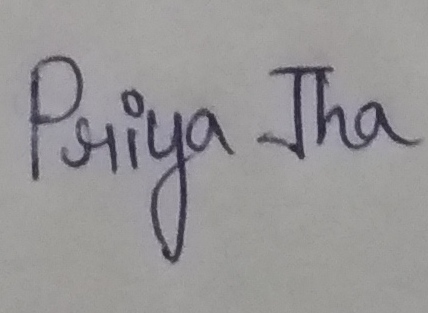 Priya Jha